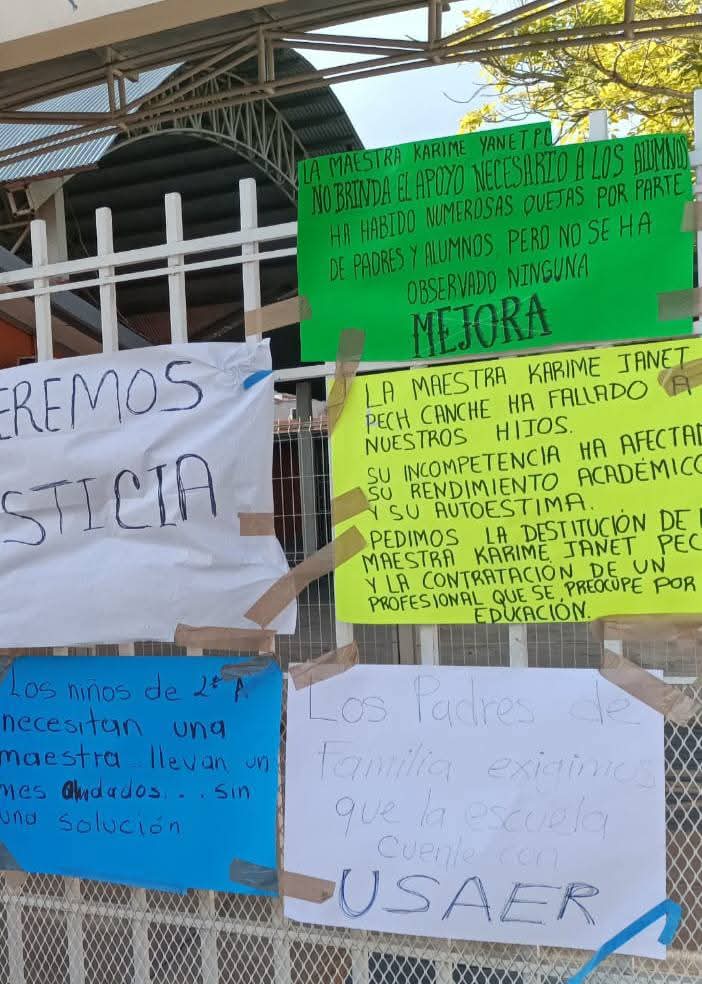 LA MAESTRA KARIME YANET PC
NO BRINDA EL APOYO NECESARIO A LOS ALUMNOS
HA HABIDO NUMEROSAS QUEJAS POR PARTE
DE PADRES Y ALUMNOS, PERO NO SE HA
OBSERVADO NINGUNA
MEJORA
EREMOS
STICIA
LA MAESTRA KARIME JANET
PECH CANCHE HA FALLADO A
NUESTROS HIJOS.
SU INCOMPETENCIA HA AFECTAD
SU RENDIMIENTO ACADÉMICO
Y SU AUTOESTIMA.
PEDIMOS LA DESTITUCIÓN DE L
MAESTRA KARIME JANET PEC
Y LA CONTRATACIÓN DE UN
PROFESIONAL QUE SE PREOCUPE POR
EDUCACIÓN.
Los niños de 2° A
necesitan una
maestra llevan un
mes dados... sin
una solución
Los Padres de
Familia exigimos
que la escuela
cuente con
USAER